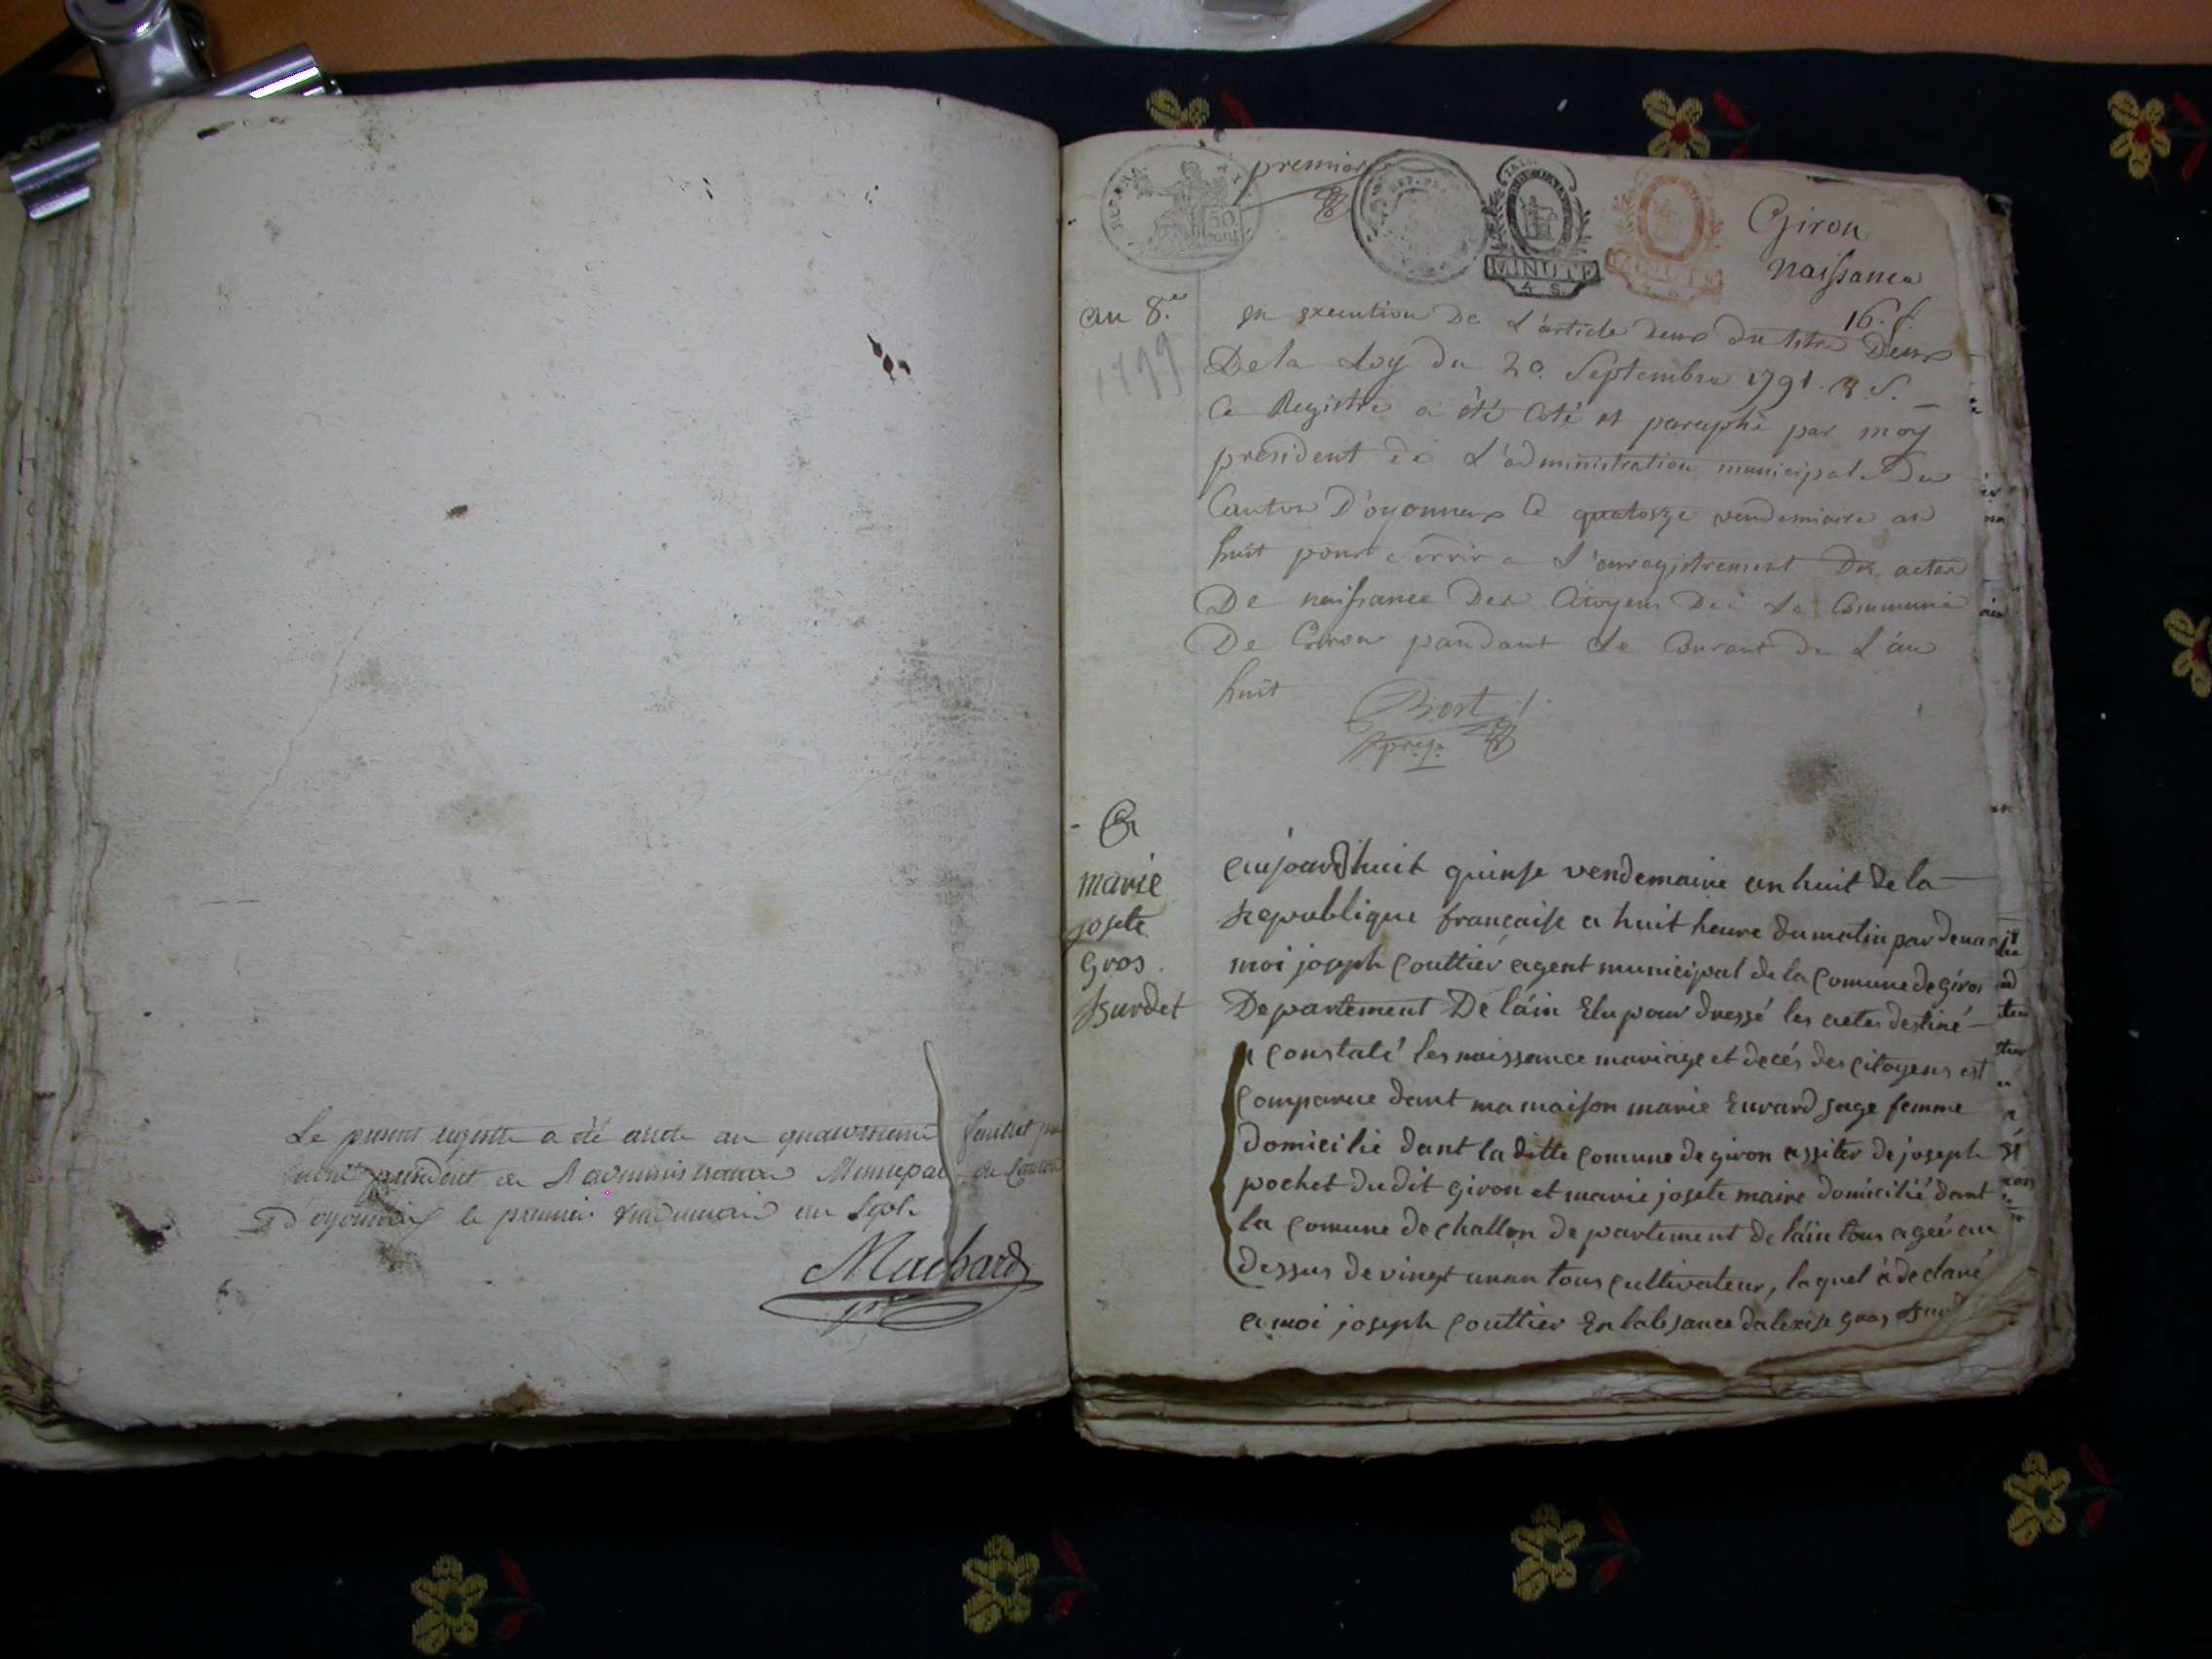 Le present registre a été areté au quatorzieme feuillet par
nous president de l'administration Municipal du Canton
d'oyonnax le premier vendemiaire an sept.
Machard
pr
premier
REP. FRA.
50
cent
MINUTE
4 S.
MINUTE
Giron
naissance
16. f.
an 8.e
1799
en execution de L'article deux du titre Deux
De la Loy du 20. Septembre 1791. v. S.
Ce Registre a été Coté et paraphé par moy
président de L'administration municipale Du
Canton D'oyonnax le quatorze vendemiaire an
huit pour servir a L'enregistrement Des actes
De naissance Des Citoyens De La Commune
De Giron pandant le Courant de L'an
huit
Bost
presi.
marie
josete
Gros
burdet
aujourdhuit quinse vendemaire an huit de la
republique francaise a huit heure du matin par devan
moi joseph Couttier agent municipal de la Comune de giron
Departement De láin Elu pour dressé les actes destiné
a Constaté les naissance mariage et decés des Citoyens est
Comparue dant ma maison marie Euvard sage femme
domicilié dant la ditte Comune de giron assiter de joseph
pochet du dit giron et marie josete maire domicilié dant
la Comune de challon departement de láin tous ageé au
dessus de vingt un an tous Cultivateur, laquel à declaré
a moi joseph Couttier En labsance dalexise gros burd